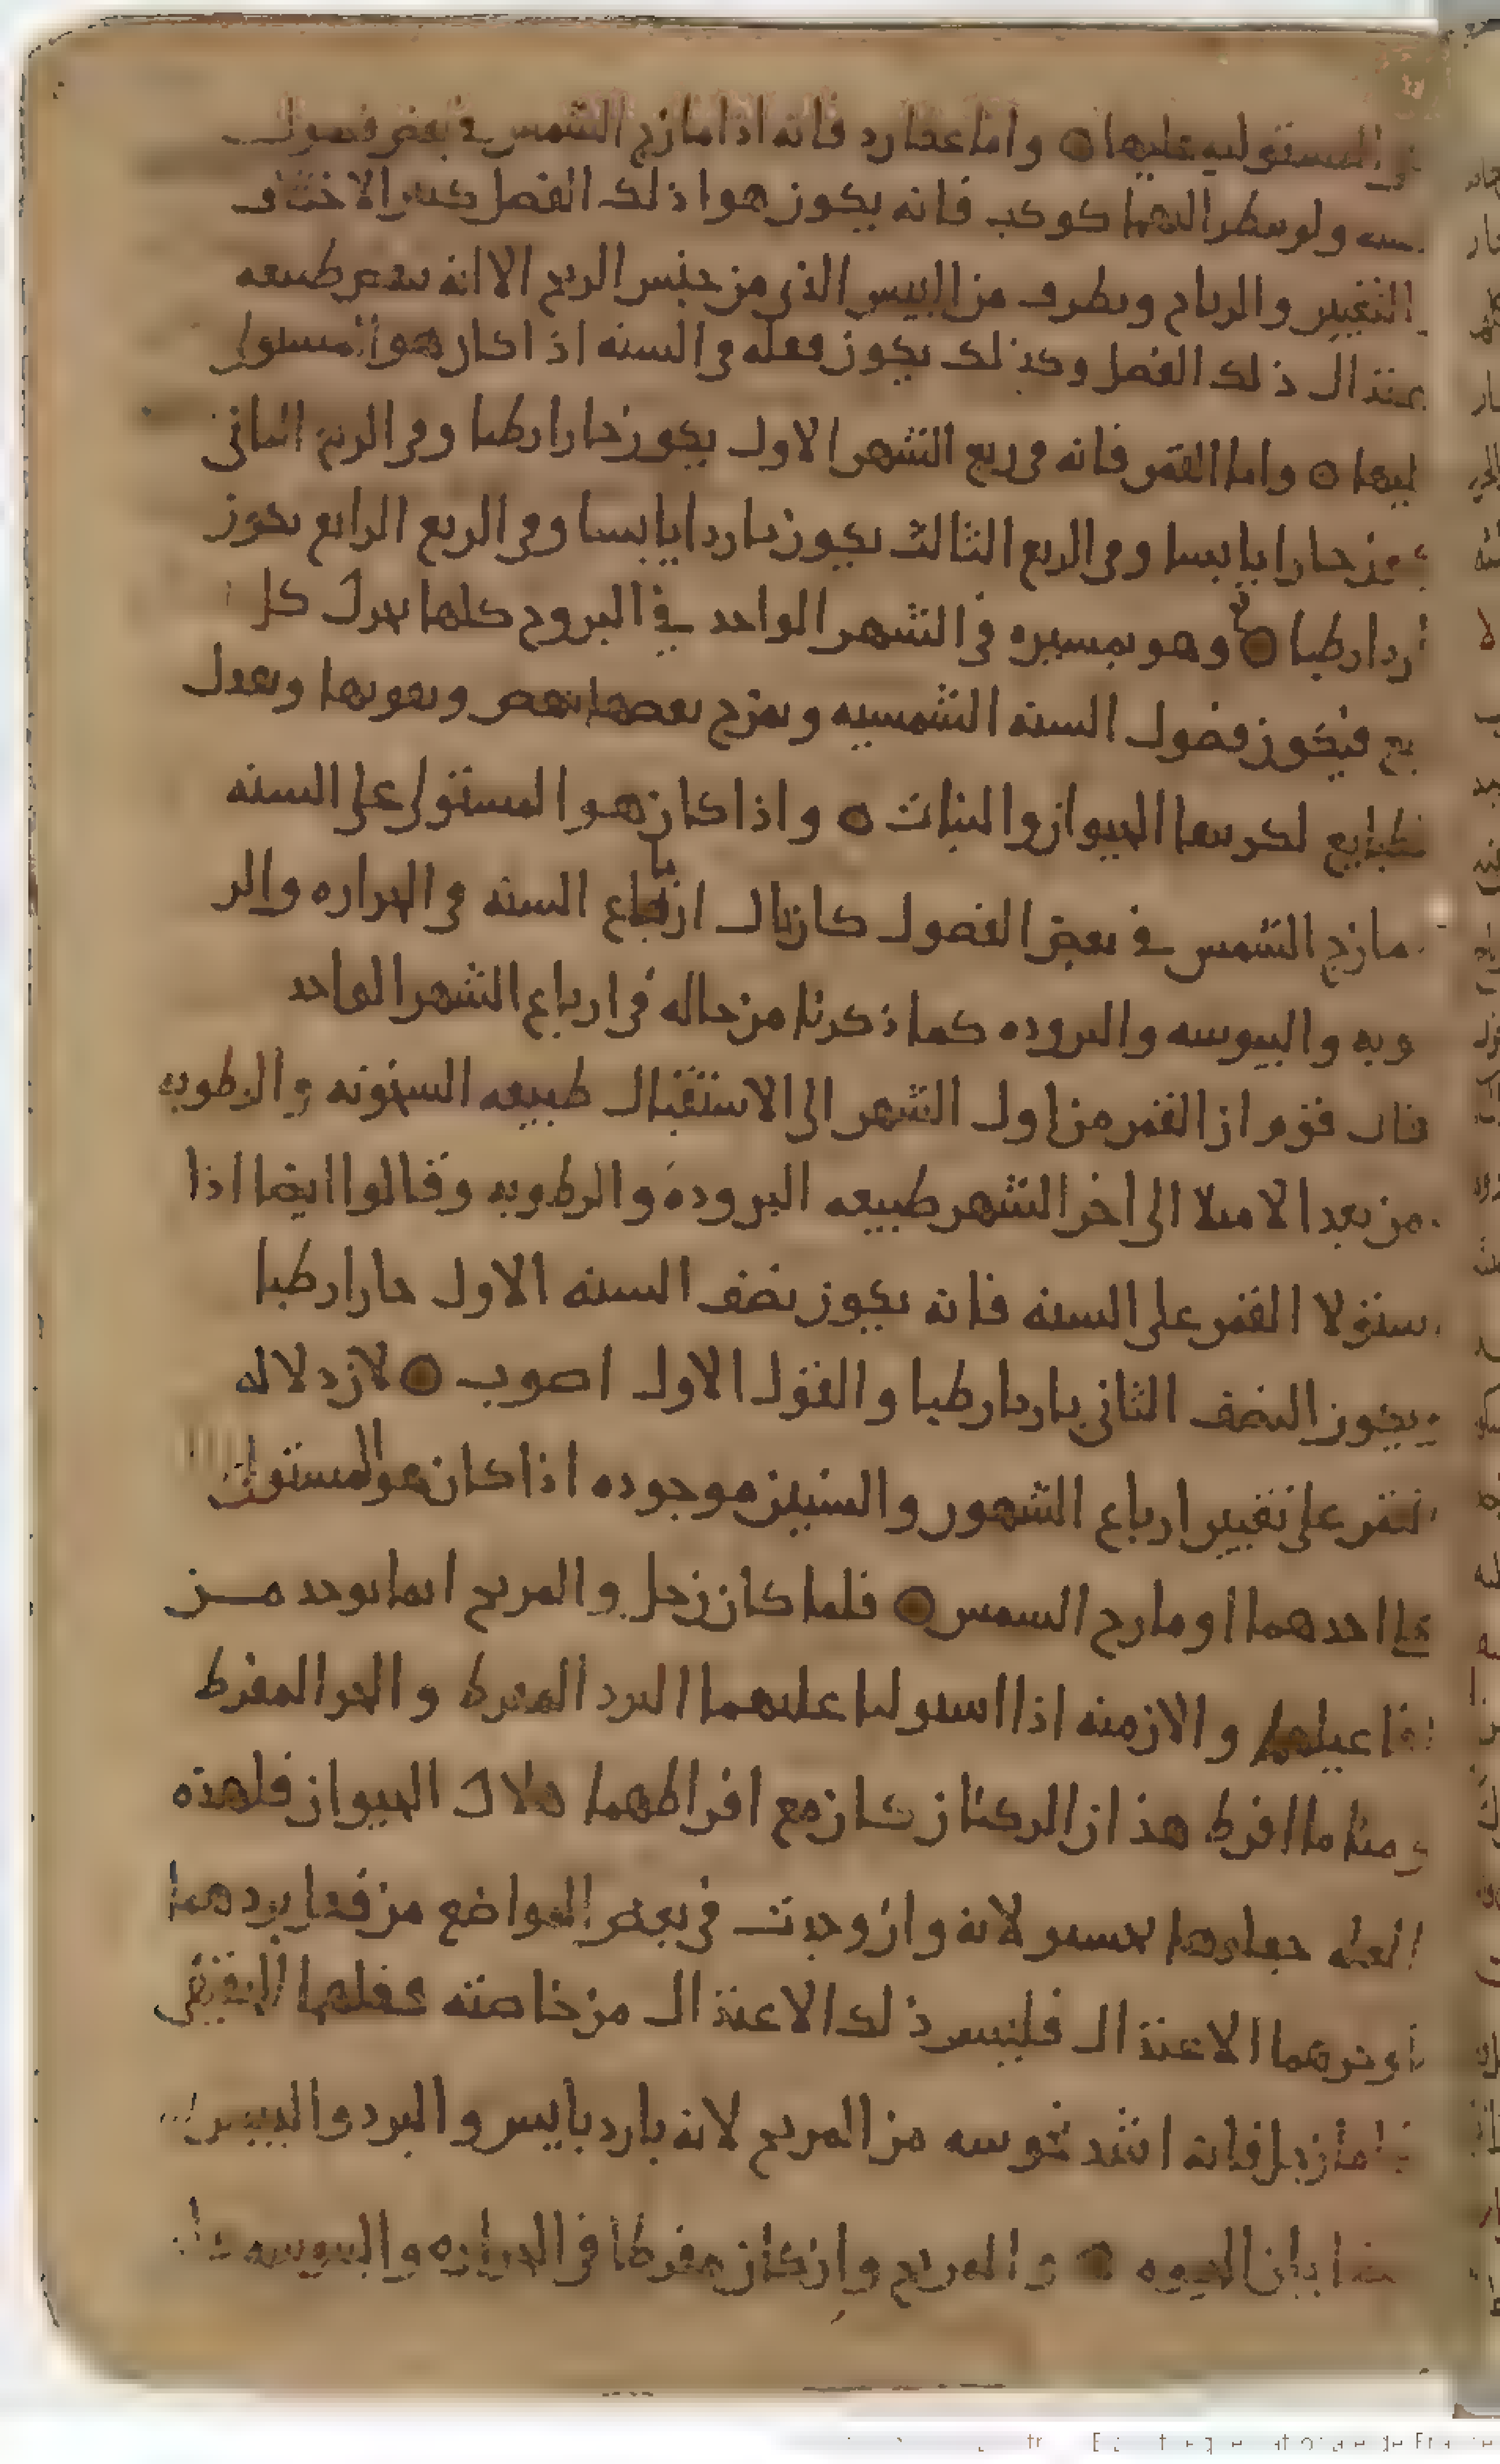 المستوليه عليها ○ واما عطارد فانه اذا مازج الشمس في بعض فصول
ولم ينظر اليهما كوكب فانه يكون هوا ذلك الفصل كثير الاختلاف
والتغيير والرياح وبطرف من اليبس الذي من جنس الريح الا انه
ذلك الفصل وكذلك يكون فعله في السنه اذا كان هو المستولي
عليها ○ واما القمر فانه في ربع الشهر الاول يكون حارا رطبا وفي الربع الثاني
يكون حارا يابسا وفي الربع الثالث يكون باردا يابسا وفي الربع الرابع يكون
باردا رطبا ○ وهو بمسيره في الشهر الواحد في البروج كلها يحرك كل
فيكون فصول السنه الشمسيه ويمزج بعضها ببعض ويقويها ويعدل
الحيوان والنبات ○ واذا كان هو المستولي على السنه
مازج الشمس في بعض الفصول كان حال ارباع السنه في الحراره والر
وبه واليبوسه والبروده كما ذكرنا من حاله في ارباع الشهر الواحد
قال قوم ان القمر من اول الشهر الى الاستقبال طبيعه السخونه والرطوبه
من بعد الامتلا الى اخر الشهر طبيعه البروده والرطوبه وقالوا ايضا اذا
ستولا القمر على السنه فانه يكون نصف السنه الاول حارا رطبا
ويكون النصف الثاني باردا رطبا والقول الاول اصوب ○ لان دلاله
القمر على تغيير ارباع الشهور والسنين موجوده اذا كان هو المستولي
على احدهما او مازج الشمس ○ فلما كان زحل والمريخ انما يوجد مـن
افاعيلهما والازمنه اذا استوليا عليهما البرد المفرط والحر المفرط
ومتا ما افرط هذان الركنان كان مع افراطهما هلاك الحيوان فلهذه
العله جعلوهما نحسين لانه وان وجدت في بعض المواضع من فعل بردهما
وحرهما الاعتدال فليس ذلك الاعتدال من خاصته فعلهما
زحل فانه اشد نحوسه من المريخ لانه بارد يابس والبرد واليبس
الحيوه ○ والمريخ وان كان مفرطا في الحراره واليبوسه